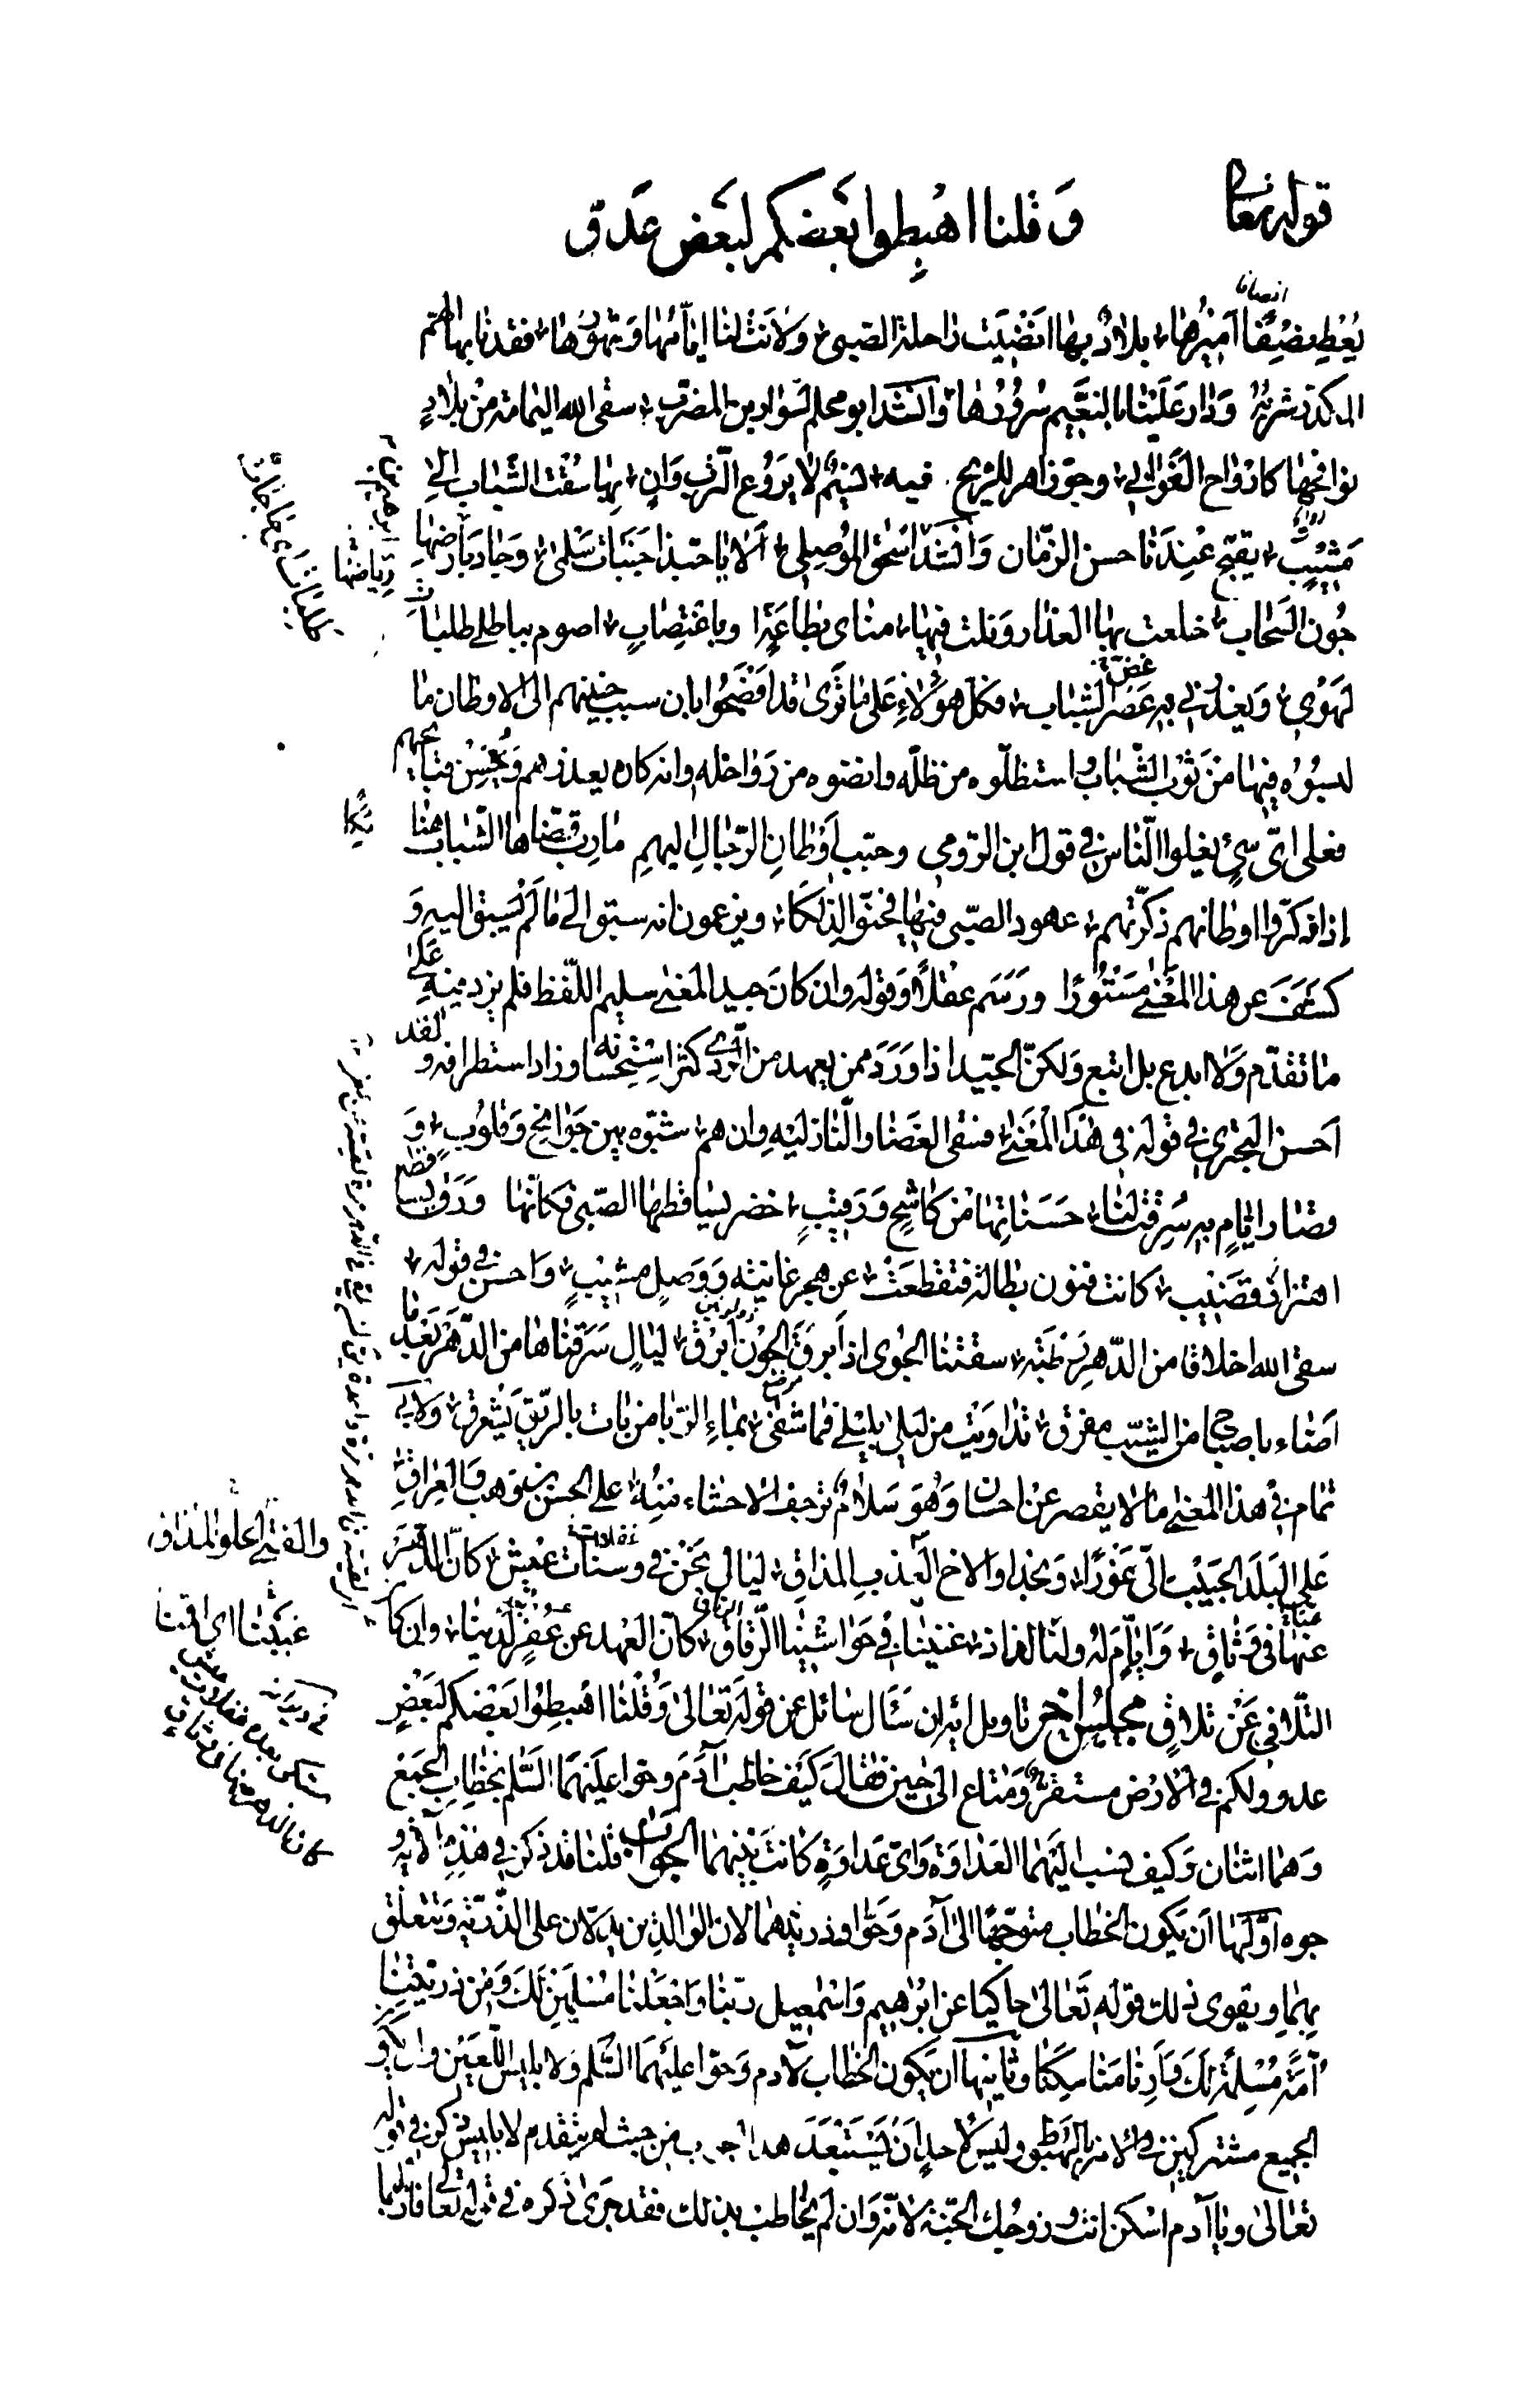 قوله تعالى وقلنا اهبطوا بعضكم لبعض عدو
انصافا
بلاد بها انضيت راحلة الصبى ولانت لنا ايامها وشهورها فقدنا بها الهم
المكدر شربه ودار علينا بالنعيم سرورها وانشد ابو محلم لسوار بن المضرب سقى الله اليمامة من بلاد
نوافحها كارواح الغوانى وجو زاهر للريح فيه نسيم لا يروع الترب وان بها سقت الشباب الى
مشيب يقبح عندنا حسن الزمان وانشد اسحق الموصلى الا يا حبذا جنبات سلمى وجاد بارضها
جون السحاب خلعت بها العذار ونلت فيها مناى بطاعة او باغتصاب اسوم بباطلى طلبات
لهوى ويعذرنى به عصر الشباب فكل هؤلاء على ما ترى قد افصحوا بان سبب حنينهم الى الاوطان ما
لبسوه فيها من ثوب الشباب واستظلوه من ظله وانضوه من رواحله وانه كان يعذرهم ويحسن قبايحهم
فعلى اى شئ يغلوا الناس فى قول ابن الرومى وحبب اوطان الرجال اليهم مارب قضاها الشباب هنالكا
اذا ذكروا اوطانهم ذكرتهم عهود الصبى فيها فحنوا لذلكا ويزعمون انه سبق الى ما لم يسبق اليه و
كشف عن هذا المعنى مستورا ورسم غفلا وقوله وان كان جيد المعنى سليم اللفظ فلم يزد فيه على
ما تقدم ولا ابدع بل اتبع ولكن الجيد اذا ورد ممن يعهد منه الردى كثر استحسانه وزاد استطرافه ولقد
احسن البحترى فى قوله فى هذا المعنى فسقى الغضا والنازليه وان هم شبوه بين جوانح وقلوب و
قصار ايام به سرقت لنا حسناتها من كاشح ورقيب خضر تساقطها الصبى فكانها ورق يساقطه
اهتزاز قضيب كانت فنون بطالة فتقطعت عن هجر غانية ووصل مشيب واحسن فى قوله
سقى الله اخلافا من الدهر رطبة سقتنا الجوى اذ ابرق الجون ابرق ليال سرقناها من الدهر بعد ما
اضاء باصباح من الشيب مفرق تداويت من ليلى بليلى فما شفى بماء الربا من بات بالريق يشرق ولابى
تمام فى هذا المعنى ما لا يقصر عن احسان وهو سلام ترجف الاحشاء منه على الحسن بن وهب والعراق
على البلد الحبيب الى غورا ونجدا والاخ العذب المذاق ليالى نحن فى وسنات عيش كان الدهر
عنها فى وثاق وايام له ولنا لدان غنينا فى حواشيها الرقاق كان العهد عن عفر لدينا وان كان
التلاقى عن تلاق مجلس اخر تاويل اية ان سئال سائل عن قوله تعالى وقلنا اهبطوا بعضكم لبعض
عدو ولكم فى الارض مستقر ومتاع الى حين فقال كيف خاطب ادم وحوا عليهما السلم بخطاب الجمع
وهما اثنان وكيف نسب اليهما العداوة واى عداوة كانت بينهما الجواب قلنا قد ذكر فى هذه الاية و
جوه اولها ان يكون الخطاب متوجها الى آدم وحوا وذريتهما لان الوالدين يدلان على الذرية وتتعلق
بهما ويقوى ذلك قوله تعالى حاكيا عن ابرهيم واسمعيل ربنا واجعلنا مسلمين لك ومن ذريتنا
امة مسلمة لك وارنا مناسكنا وثانيها ان يكون الخطاب لآدم وحوا عليهما السلم ولابليس اللعين وان يكو
الجميع مشتركين فى الامر بالهبوط وليس لاحد ان يستبعد هذا الجواب من حيث لم يتقدم لابليس ذكر فى قوله
تعالى ويا آدم اسكن انت وزوجك الجنة لانه وان لم يخاطب بذلك فقد جرى ذكره فى قوله تعالى فازلهما
رياضها
والفتى الحلو المذاق